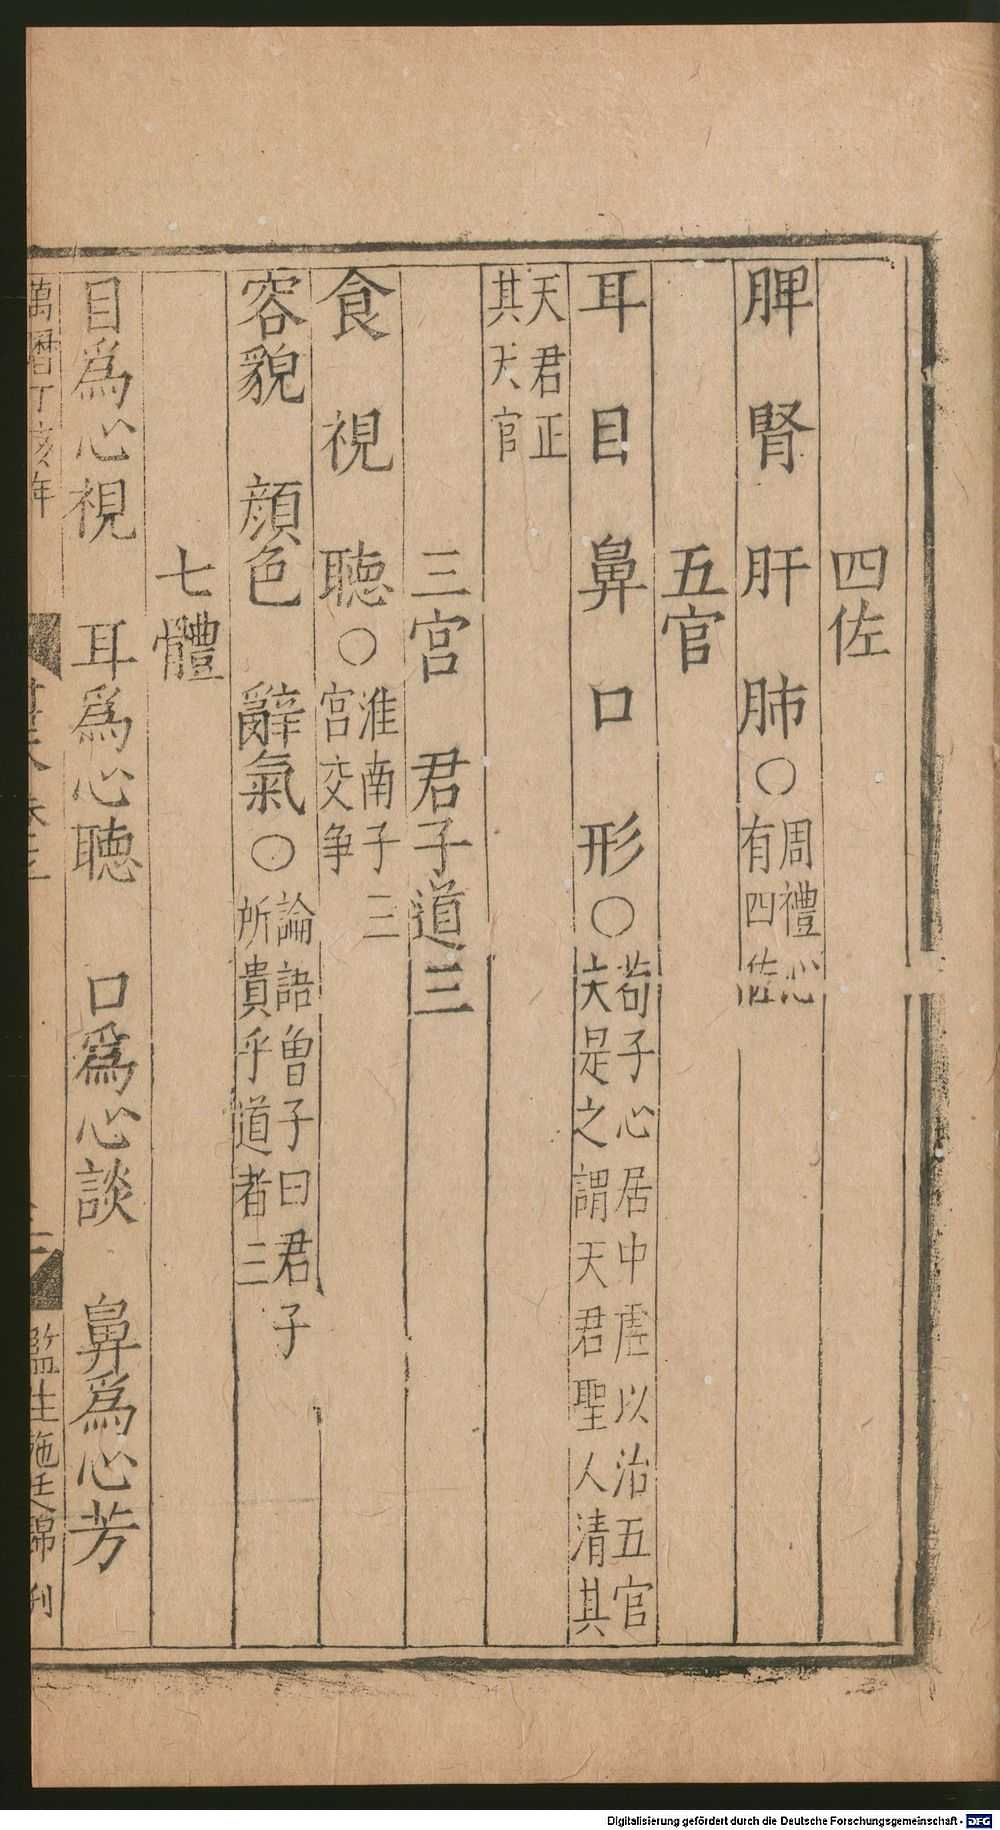 四佐
脾　腎　肝　肺○周禮心有四佐
五官
耳　目　鼻　口　形○荀子心居中虛以治五官夫是之謂天君聖人清其
天君正其天官
三宮　君子道三
食　視　聴○淮南子三宮交争
容貌　顔色　辭氣○論語曽子曰君子所貴乎道者三
七體
目爲心視　耳爲心聴　口爲心談　鼻爲心芳
萬曆丁亥年
監生施廷錦刋
Digitalisierung gefördert durch die Deutsche Forschungsgemeinschaft - DFG